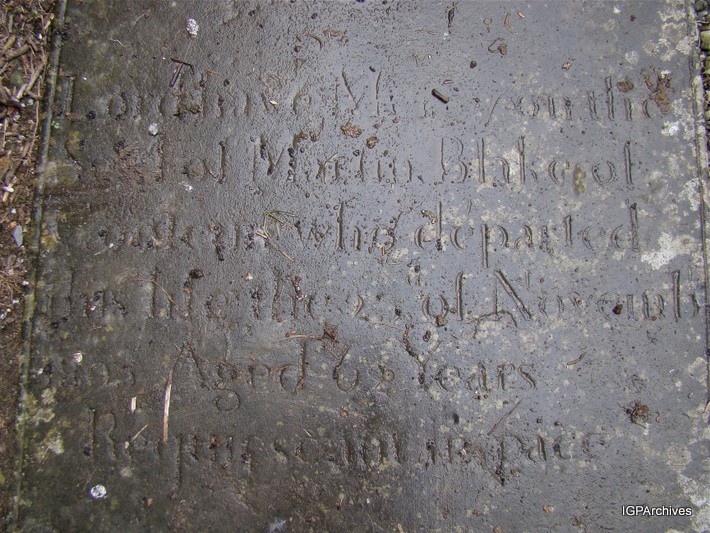 Lord have M on the
Soul of Martin Blake of
who departed
this life the 2 of Novemb
Aged 6 Years
Requiescant in pace
IGPArchives